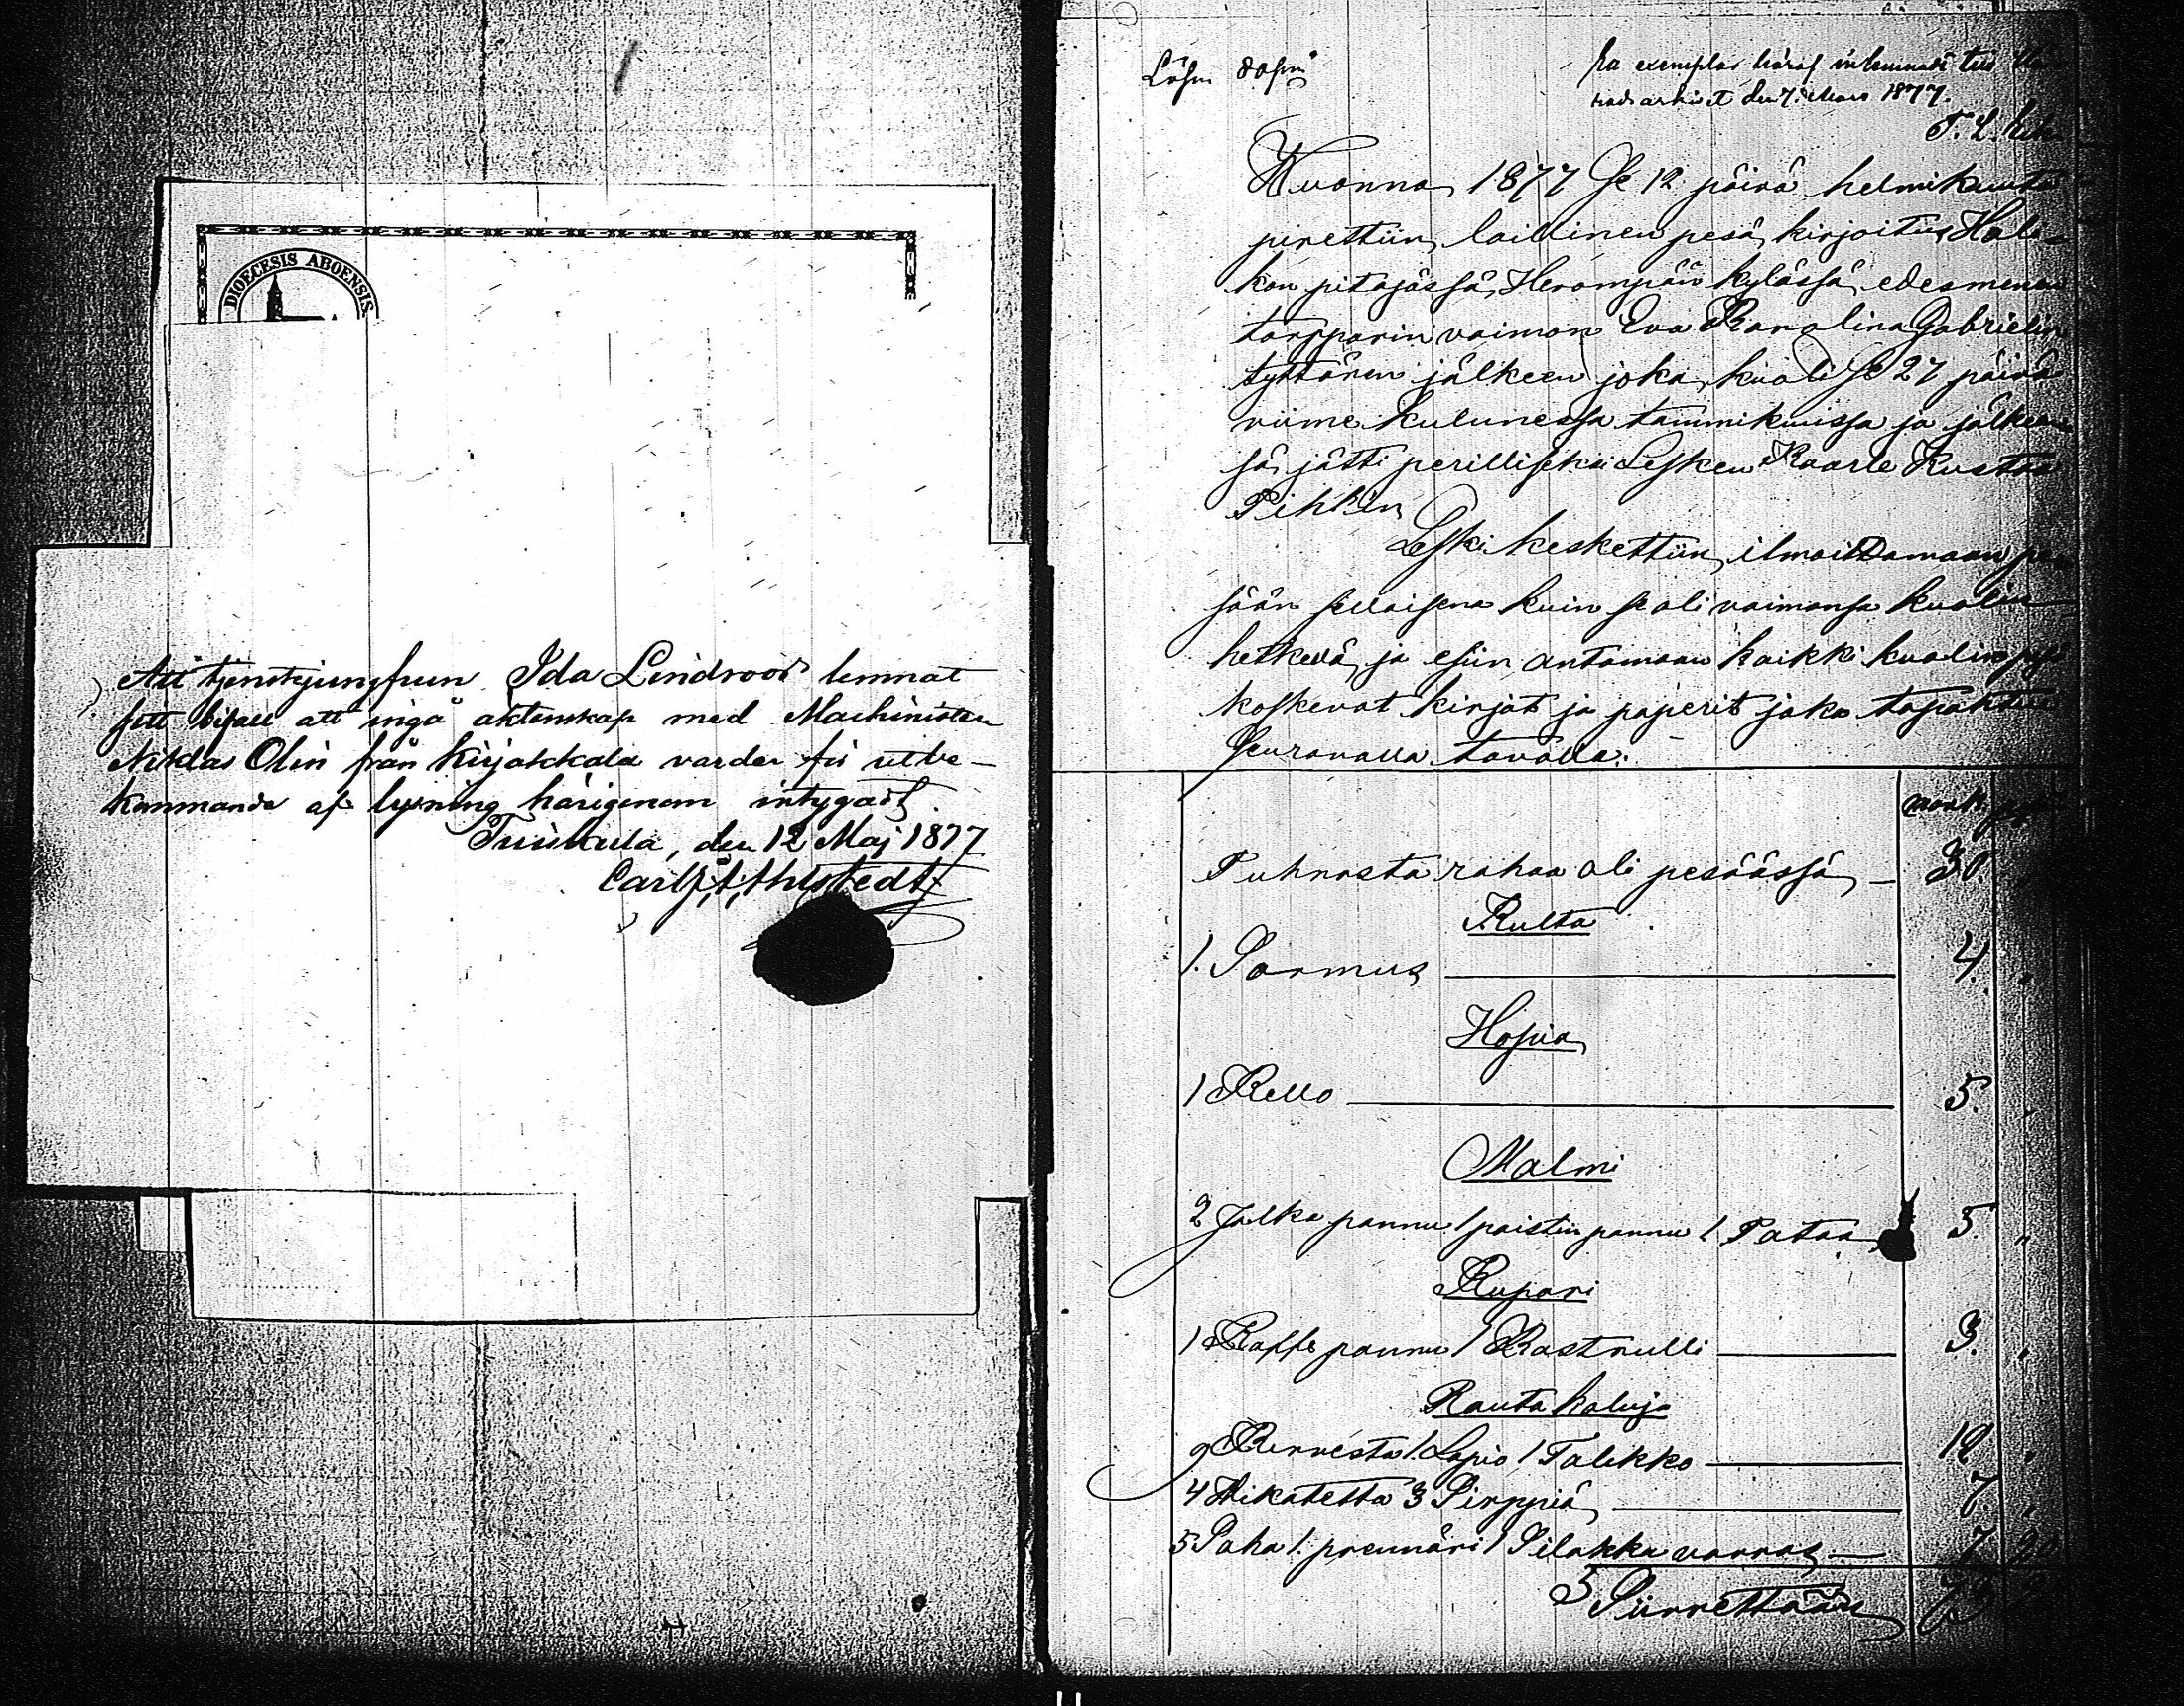 DIOECESIS ABOENSIS
Att tjenstejungfrun Ida Lindroos lemnat
sitt bifall att ingå äktenskap med Machinisten
Niklas Olin från Kirjakkala varder för utbe-
kommande af lysning härigenom intygadt.
Tuiskula, den 12 Maj 1877
Carl Ahlstedt
Ett exemplar häraf inlemnadt till
radsarkivet den 7. Mars 1877.
Wuonna 1877 se 12 päivä helmikuuta
pirettiin laillinen pesä kirjoitus Hali-
kon pitäjässä, Herompään kylässä, edesmenen
torpparin vaimon Eva Karolina Gabrielin
tyttären jälkeen joka kuoli se 27 päivä
viime kulunessa tammikuussa ja jälkeen
sä jätti perilliseksi Lesken Kaarle Kustaa
Pihkin
Leski keskettiin ilmoittamaan pe
sään sellaisena kuin se oli vaimonsa kuolin
hetkellä, ja esiin antamaan kaikki kuolinpesä
koskevat kirjat ja paperit joka tapahtui
seuravalla tavalla:
mark. p
Puhnasta rahaa oli pesäässä — 30. "
Kulta
1. Sormus 4. "
Hopia
1 Kello 5. "
Malmi
2 Jalka pannu 1 paistin pannu 1 Pataa 5. "
Kupari
1 Kaffe pannu 1 Kastrulli 3. "
Rauta kaluja
9 Kirvestä 1. Lapio 1 Talikko 12 "
4 Wikatetta 3 Sirppiä 7. "
5 Saha 1. prennäri 1 Silakka varras — 7
Siirrettään